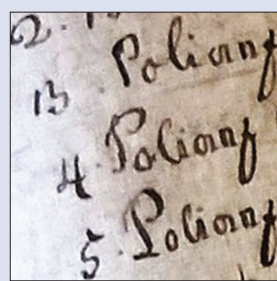 2.
13 Polianf
4. Polianf
5. Polianf